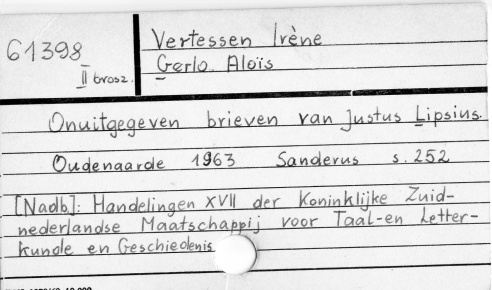 61398
II brosz.
Vertessen Irène
Gerlo Aloïs
Onuitgegeven brieven van Justus Lipsius.
Oudenaarde 1963 Sanderus s. 252
[Nadb]: Handelingen XVII der Koninklijke Zuid-
nederlandse Maatschappij voor Taal-en Letter-
kunde en Geschiedenis